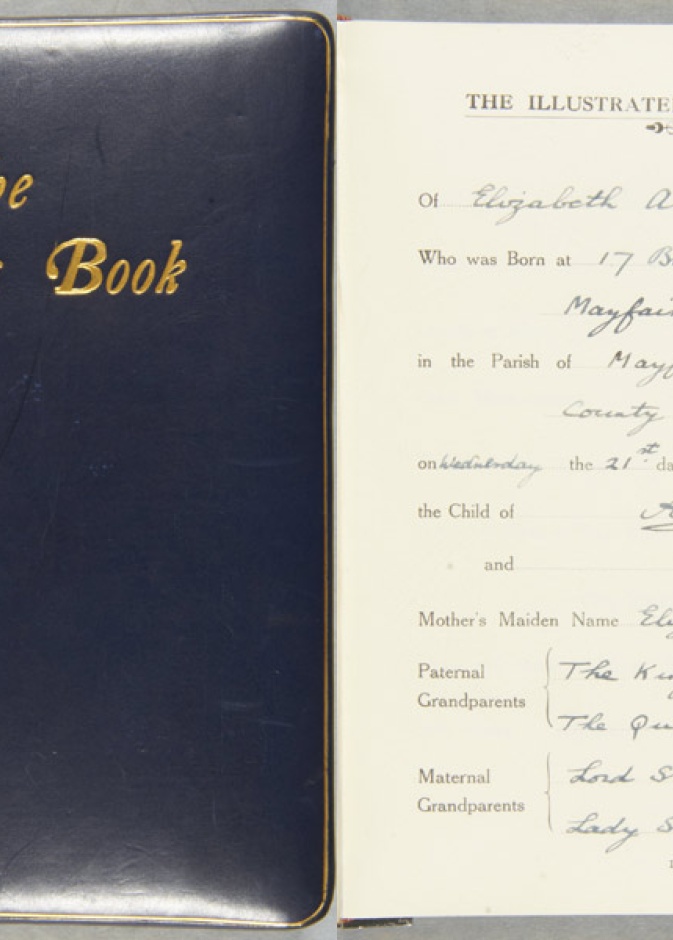 Book
THE ILLUSTRATE
Of Elizabeth A
Who was Born at 17 B
Mayfair
in the Parish of Mayf
County
on Wednesday the 21st da
the Child of
and
Mother's Maiden Name Eliz
Paternal
Grandparents
The Kin
The Qu
Maternal
Grandparents
Lord S
Lady S